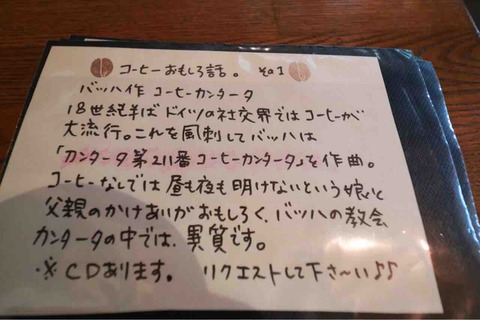 コーヒーおもしろ話。 その1
バッハ作 コーヒーカンタータ
18世紀半ば ドイツの社交界ではコーヒーが
大流行。これを風刺してバッハは
「カンタータ第211番コーヒーカンタータ」を作曲。
コーヒーなしでは昼も夜も明けないという娘と
父親のかけあいがおもしろく、バッハの教会
カンタータの中では、異質です。
※CDあります。 リクエストして下さ〜い♪♪